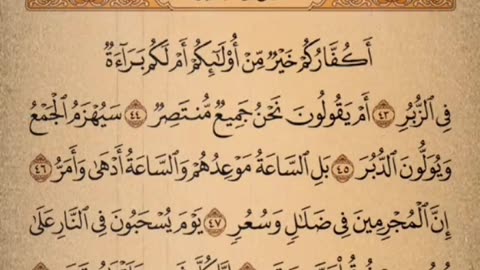 أَكُفَّارُكُمْ خَيْرٌ مِّنْ أُوْلَـٰٓئِكُمْ أَمْ لَكُم بَرَآءَةٌ
فِى ٱلزُّبُرِ ٤٣ أَمْ يَقُولُونَ نَحْنُ جَمِيعٌ مُّنتَصِرٌ ٤٤ سَيُهْزَمُ ٱلْجَمْعُ
وَيُوَلُّونَ ٱلدُّبُرَ ٤٥ بَلِ ٱلسَّاعَةُ مَوْعِدُهُمْ وَٱلسَّاعَةُ أَدْهَىٰ وَأَمَرُّ ٤٦
إِنَّ ٱلْمُجْرِمِينَ فِى ضَلَـٰلٍ وَسُعُرٍ ٤٧ يَوْمَ يُسْحَبُونَ فِى ٱلنَّارِ عَلَىٰ